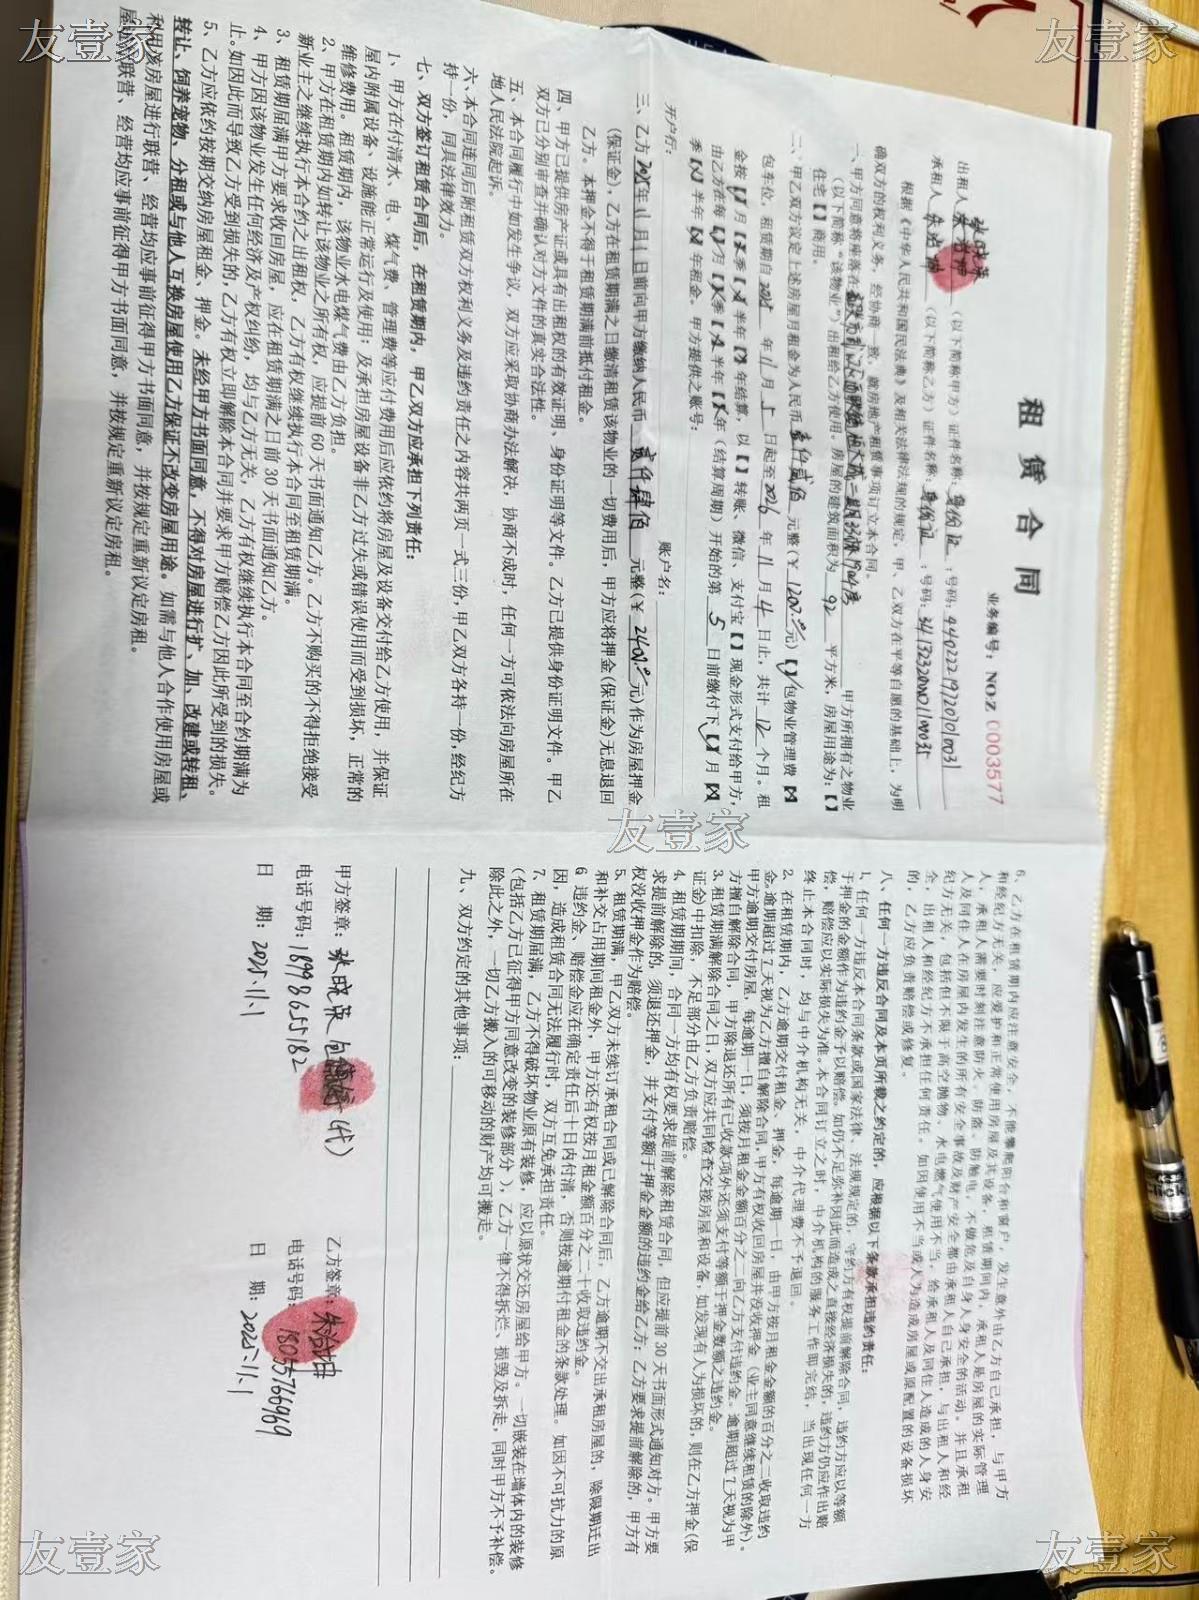 友壹家
友壹家
租赁合同
业务编号：NO.Z 0003577
出租人 （以下简称甲方）证件名称：身份证：号码：
承租人 （以下简称乙方）证件名称：身份证：号码：
根据《中华人民共和国民法典》及相关法律法规的规定，甲、乙双方在平等自愿的基础上，为明
确双方的权利义务，经协商一致，就房地产租赁事项订立本合同。
一、甲方同意将座落在 甲方所拥有之物业
（以下简称“该物业”）出租给乙方使用。房屋的建筑面积为 92 平方米，房屋用途为：【】
住宅【】商用。
二、甲乙双方议定上述房屋月租金为人民币 壹仟贰佰 元整（￥1200.00元）【√】包物业管理费【】
包车位，租赁期自2025年11月5日起至2026年11月4日止，共计12个月。租
金按【】月【】季【】半年【】年结算，以【】转账、微信、支付宝【】现金形式支付给甲方，
由乙方在每【】月【】季【】半年【】年（结算周期）开始的第 5 日前缴付下【】月【】
季【】半年【】年租金。甲方提供之账号：
开户行： 账户名：
三、乙方2025年11月1日前向甲方缴纳人民币 贰仟肆佰 元整（￥2400.00元）作为房屋押金
（保证金），乙方在租赁期满之日缴清租赁该物业的一切费用后，甲方应将押金（保证金）无息退回
乙方。本押金不得于租赁期满前抵付租金。
四、甲方已提供房产证或具有出租权的有效证明、身份证明等文件。乙方已提供身份证明文件。甲乙
双方已分别审查并确认对方文件的真实合法性。
五、本合同履行中如发生争议，双方应采取协商办法解决，协商不成时，任何一方可依法向房屋所在
地人民法院起诉。
六、本合同连同后附租赁双方权利义务及违约责任之内容共两页一式三份，甲乙双方各持一份，经纪方
持一份，同具法律效力。
七、双方签订租赁合同后，在租赁期内，甲乙双方应承担下列责任：
1、甲方在付清水、电、煤气费、管理费等应付费用后应依约将房屋及设备交付给乙方使用，并保证
屋内附属设备、设施能正常运行及使用；及承担房屋设备非乙方过失或错误使用而受到损坏，正常的
维修费用。租赁期内，该物业水电煤气费由乙方负担。
2、甲方在租赁期内如转让该物业之所有权，应提前60天书面通知乙方。乙方不购买的不得拒绝接受
新业主之继续执行本合约之出租权，乙方有权继续执行本合同至租赁期满。
3、租赁期届满甲方要求收回房屋，应在租赁期满之日前30天书面通知乙方。
4、甲方因该物业发生任何经济及产权纠纷，均与乙方无关，乙方有权继续执行本合同至合约期满为
止。如因此而导致乙方受到损失的，乙方有权立即解除本合同并要求甲方赔偿乙方因此所受到的损失。
5、乙方应依约按期交纳房屋租金、押金。未经甲方书面同意，不得对房屋进行扩、加、改建或转租、
转让、饲养宠物、分租或与他人互换房屋使用乙方保证不改变房屋用途。如需与他人合作使用房屋或
利用该房屋进行联营、经营均应事前征得甲方书面同意，并按规定重新议定房租。
屋进行联营、经营均应事前征得甲方书面同意，并按规定重新议定房租。
友壹家
6、乙方在租赁期内应注意安全，不能攀爬阳台和窗户，发生意外由乙方自己承担，与甲方
和经纪方无关，应爱护和正常使用房屋及其设备，租赁期间内，承租人是房屋的实际管理
人，承租人需要时刻注意防火、防盗、防触电，不做危及自身人身安全的活动。并且承租
人及同住人在房屋内发生的所有安全事故及财产安全都由承租人自己承担，与出租人和经
纪方无关，包括但不限于高空抛物、水电燃气使用不当，给承租人及同住人造成的人身安
全，出租人和经纪方不承担任何责任。如因使用不当或人为造成房屋或原配置的设备损坏
的，乙方应负责赔偿或修复。
八、任何一方违反合同及本页所载之约定的，应根据以下条款承担违约责任：
1、任何一方违反本合同条款或国家法律、法规规定的，守约方有权提前解除合同，违约方应以等额
于押金的金额作为违约金予以赔偿。如仍不足弥补因此而造成之直接经济损失的，违约方仍应作出赔
偿，赔偿应以实际损失为准。本合同订立之时，中介机构的服务工作即完结，当出现任何一方
终止本合同时，均与中介机构无关，中介代理费不予退回。
2、在租赁期内，乙方逾期交付租金、押金，每逾期一日，由甲方按月租金金额的百分之二收取违约
金。逾期超过7天视为乙方擅自解除合同，甲方有权收回房屋并没收押金（业主同意继续租赁的除外）。
甲方逾期交付房屋，每逾期一日，须按月租金金额百分之二向乙方支付违约金。逾期超过7天视为甲
方擅自解除合同，甲方除退还所有已收款项外还须支付等额于押金数额之违约金。
3、租赁期满解除合同之日，双方应共同检查交接房屋和设备，如发现有人为损坏的，则在乙方押金（保
证金）中扣除，不足部分由乙方负责赔偿。
4、租赁期期间，合同一方均有权要求提前解除租赁合同，但应提前30天书面形式通知对方。甲方要
求提前解除的，须退还押金，并支付等额于押金金额的违约金给乙方；乙方要求提前解除的，甲方有
权没收押金作为赔偿。
5、租赁期满，甲乙双方未续订承租合同或已解除合同后，乙方逾期不交出承租房屋的，除限期迁出
和补交占用期间租金外，甲方还有权按月租金额百分之二十收取违约金。
6 违约金、赔偿金应在确定责任后十日内付清，否则按逾期付租金的条款处理。如因不可抗力的原
因，造成租赁合同无法履行时，双方互免承担责任。
7、租赁期届满，乙方不得破坏物业原有装修，应以原状交还房屋给甲方。一切嵌装在墙体内的装修
（包括乙方已征得甲方同意改变的装修部分），乙方一律不得拆烂、损毁及拆走，同时甲方不予补偿。
除此之外，一切乙方搬入的可移动的财产均可搬走。
九、双方约定的其他事项：
甲方签章：张晓英 （代）
电话号码：18986551182
日 期：2025.11.1
乙方签章：
电话号码：18055766969
日 期：2025.11.1
友壹家
友壹家